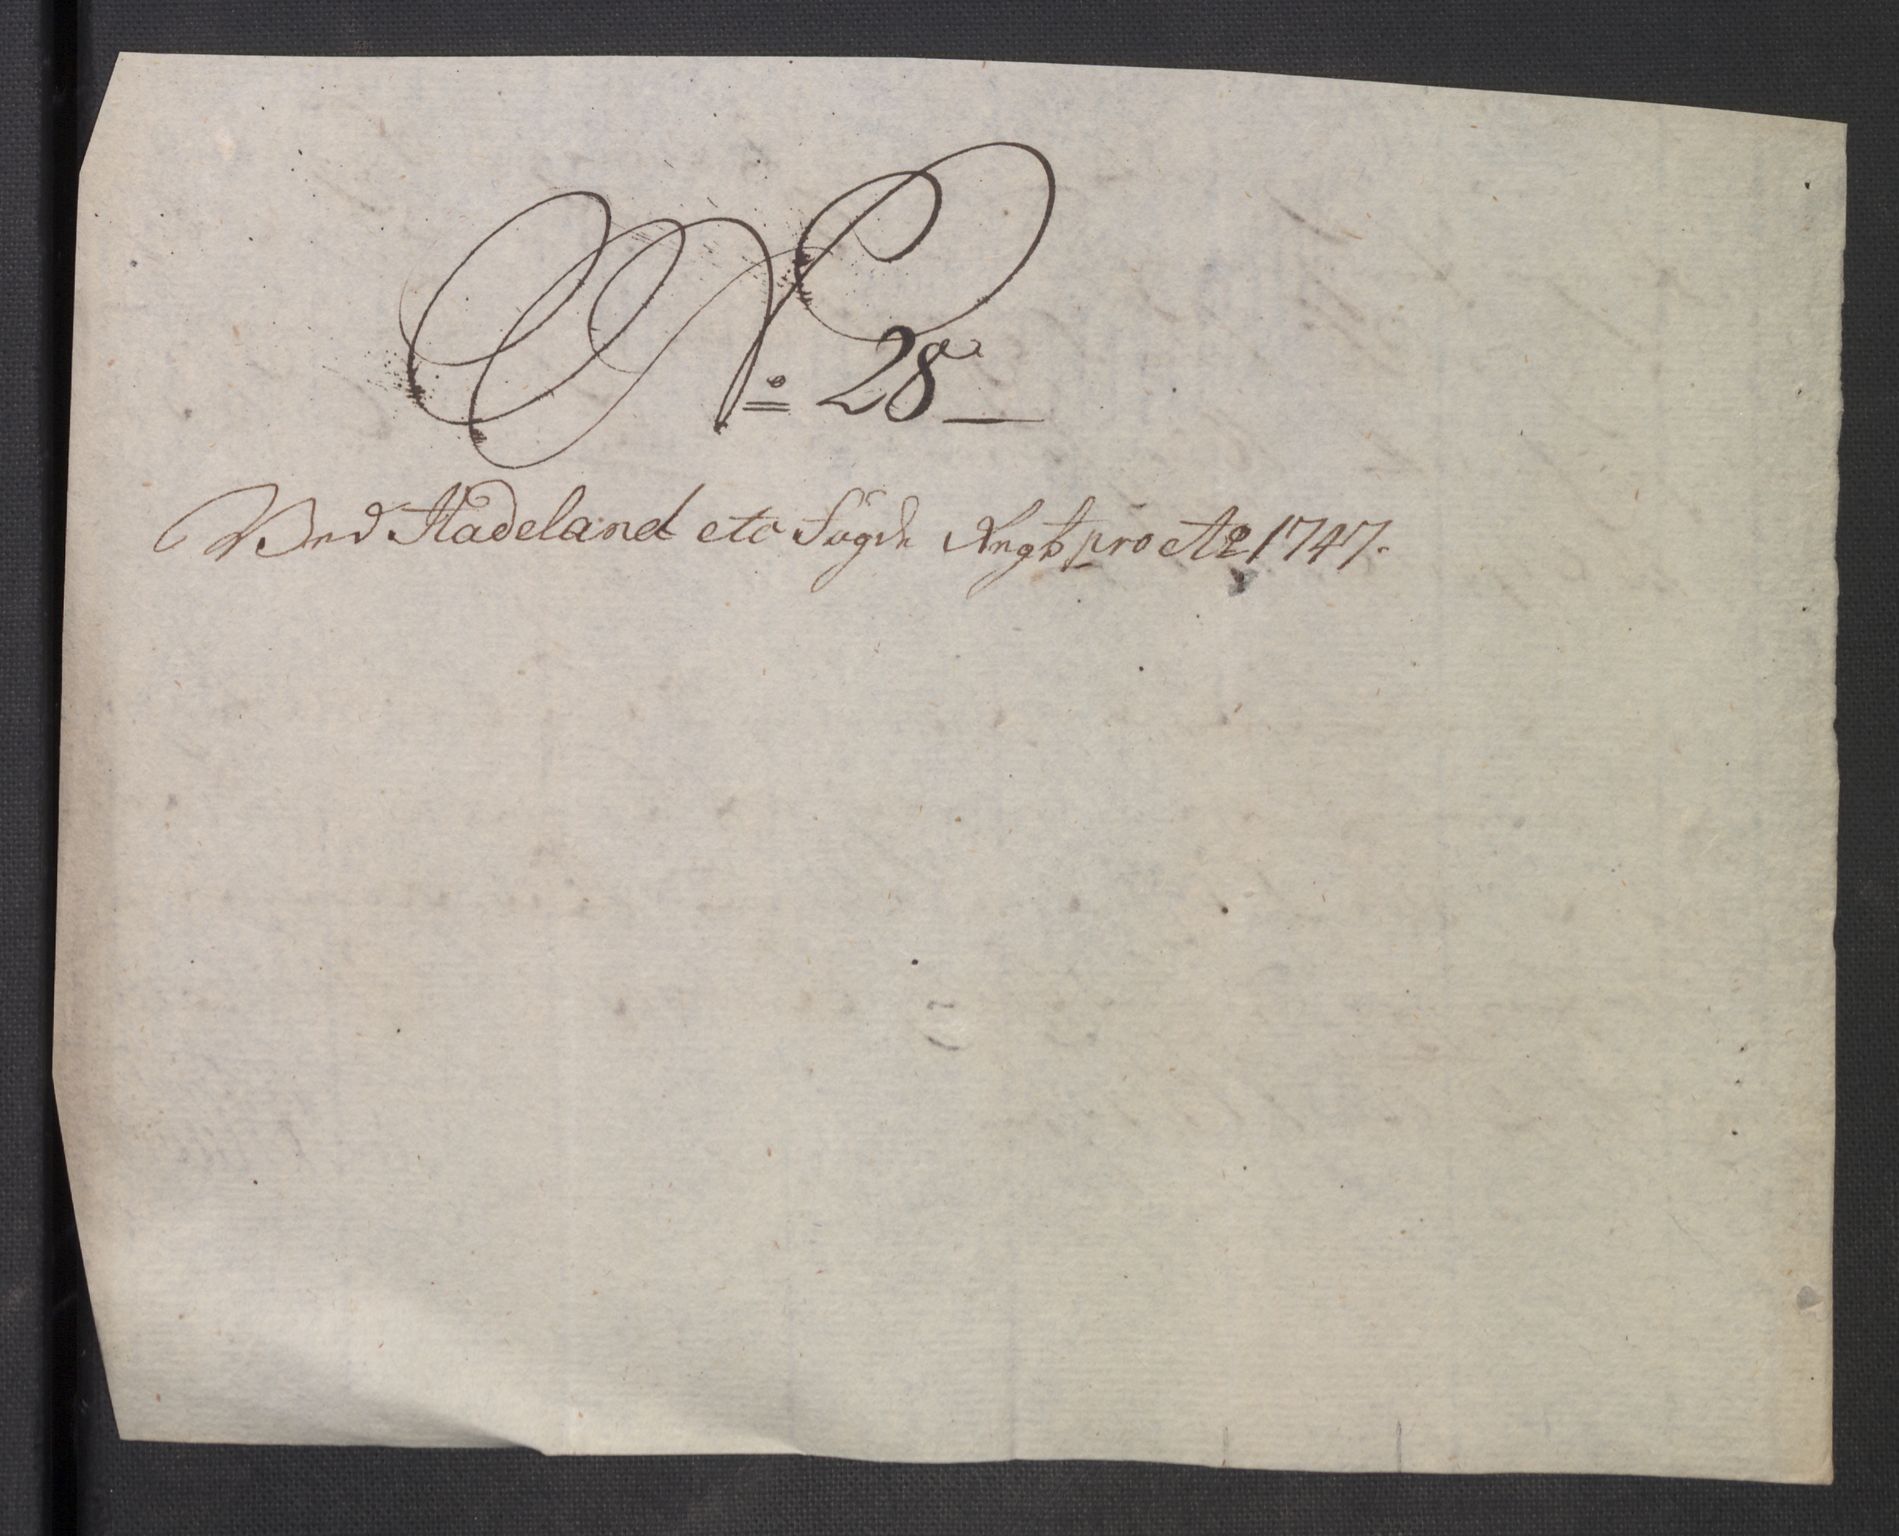 No. 28
Ved Hadeland etc Fogde Regsk pro Ao 1747.